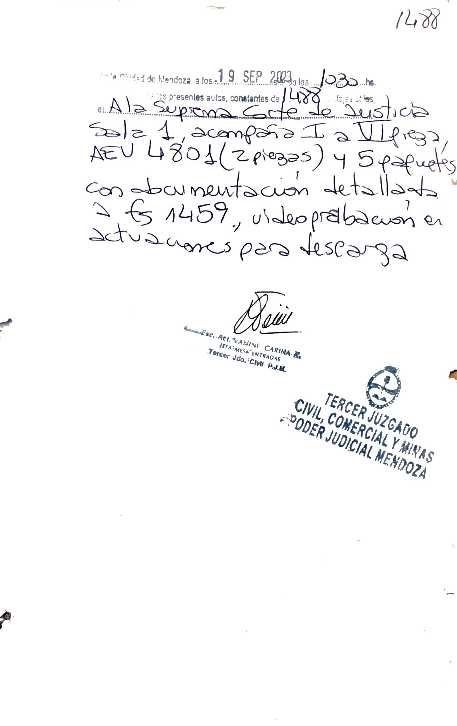 1488
Ciudad de Mendoza a los 19 SEP 2023 los 1030 hs.
los presentes autos, constantes de 1488 fojas útiles,
A la Suprema Corte de Justicia
Sala 1, acompaña I a VI pieza,
AEV 4801 (2 piezas) y 5 paquetes
con documentación detallada
a fs 1459, videoprobación en
actuaciones para descarga
VANINI CARINA E.
JEFA MESA ENTRADAS
Tercer Jdo. Civil P.J.M.
TERCER JUZGADO
CIVIL, COMERCIAL Y MINAS
PODER JUDICIAL MENDOZA